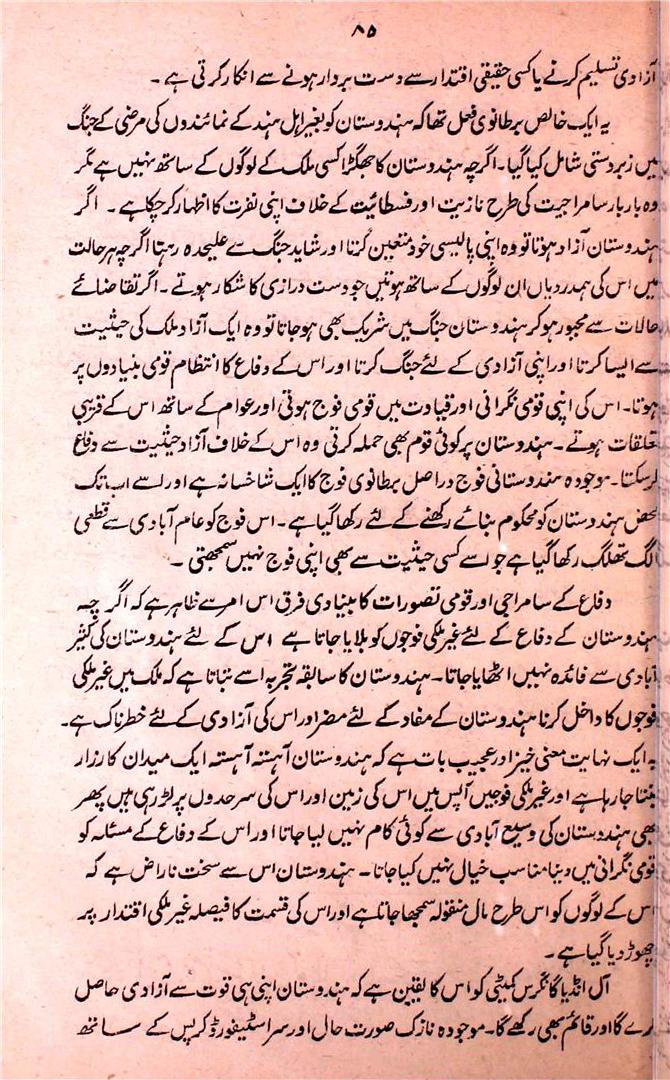 ۸۵
آزادی تسلیم کرنے یا کسی حقیقی اقتدار سے دست بردار ہونے سے انکار کرتی ہے ۔
یہ ایک خالص برطانوی فعل تھا کہ ہندوستان کو بغیر اہل ہند کے نمائندوں کی مرضی کے جنگ
میں زبردستی شامل کیا گیا ۔ اگرچہ ہندوستان کا جھگڑا کسی ملک کے لوگوں کے ساتھ نہیں ہے مگر
وہ بار بار سامراجیت کی طرح نازیت اور فسطائیت کے خلاف اپنی نفرت کا اظہار کر چکا ہے ۔ اگر
ہندوستان آزاد ہوتا تو وہ اپنی پالیسی خود متعین کرتا اور شاید جنگ سے علیحدہ رہتا اگرچہ ہر حالت
میں اس کی ہمدردیاں ان لوگوں کے ساتھ ہوتیں جو دست درازی کا شکار ہوتے ۔ اگر تقاضائے
حالات سے مجبور ہو کر ہندوستان جنگ میں شریک بھی ہو جاتا تو وہ ایک آزاد ملک کی حیثیت
سے ایسا کرتا اور اپنی آزادی کے لئے جنگ کرتا اور اس کے دفاع کا انتظام قومی بنیادوں پر
ہوتا ۔ اس کی اپنی قومی نگرانی اور قیادت میں قومی فوج ہوتی اور عوام کے ساتھ اس کے قریبی
تعلقات ہوتے ۔ ہندوستان پر کوئی قوم بھی حملہ کرتی وہ اس کے خلاف آزاد حیثیت سے دفاع
کر سکتا ۔ موجودہ ہندوستانی فوج دراصل برطانوی فوج کا ایک شاخسانہ ہے اور اسے اب تک
محض ہندوستان کو محکوم بنائے رکھنے کے لئے رکھا گیا ہے ۔ اس فوج کو عام آبادی سے قطعی
الگ تھلگ رکھا گیا ہے جو اسے کسی حیثیت سے بھی اپنی فوج نہیں سمجھتی ۔
دفاع کے سامراجی اور قومی تصورات کا بنیادی فرق اس امر سے ظاہر ہے کہ اگرچہ
ہندوستان کے دفاع کے لئے غیر ملکی فوجوں کو بلایا جاتا ہے اس کے لئے ہندوستان کی کثیر
آبادی سے فائدہ نہیں اٹھایا جاتا ۔ ہندوستان کا سابقہ تجربہ اسے بتاتا ہے کہ ملک میں غیر ملکی
فوجوں کا داخل کرنا ہندوستان کے مفاد کے لئے مضر اور اس کی آزادی کے لئے خطرناک ہے ۔
یہ ایک نہایت معنی خیز اور عجیب بات ہے کہ ہندوستان آہستہ آہستہ ایک میدان کارزار
بنتا جا رہا ہے اور غیر ملکی فوجیں آپس میں اس کی زمین اور اس کی سرحدوں پر لڑ رہی ہیں پھر
بھی ہندوستان کی وسیع آبادی سے کوئی کام نہیں لیا جاتا اور اس کے دفاع کے مسئلہ کو
قومی نگرانی میں دینا مناسب خیال نہیں کیا جاتا ۔ ہندوستان اس سے سخت ناراض ہے کہ
اس کے لوگوں کو اس طرح مال منقولہ سمجھا جاتا ہے اور اس کی قسمت کا فیصلہ غیر ملکی اقتدار پر
چھوڑ دیا گیا ہے ۔
آل انڈیا کانگرس کمیٹی کو اس کا یقین ہے کہ ہندوستان اپنی ہی قوت سے آزادی حاصل
کرے گا اور قائم بھی رکھے گا ۔ موجودہ نازک صورت حال اور سر اسٹیفورڈ کرپس کے ساتھ